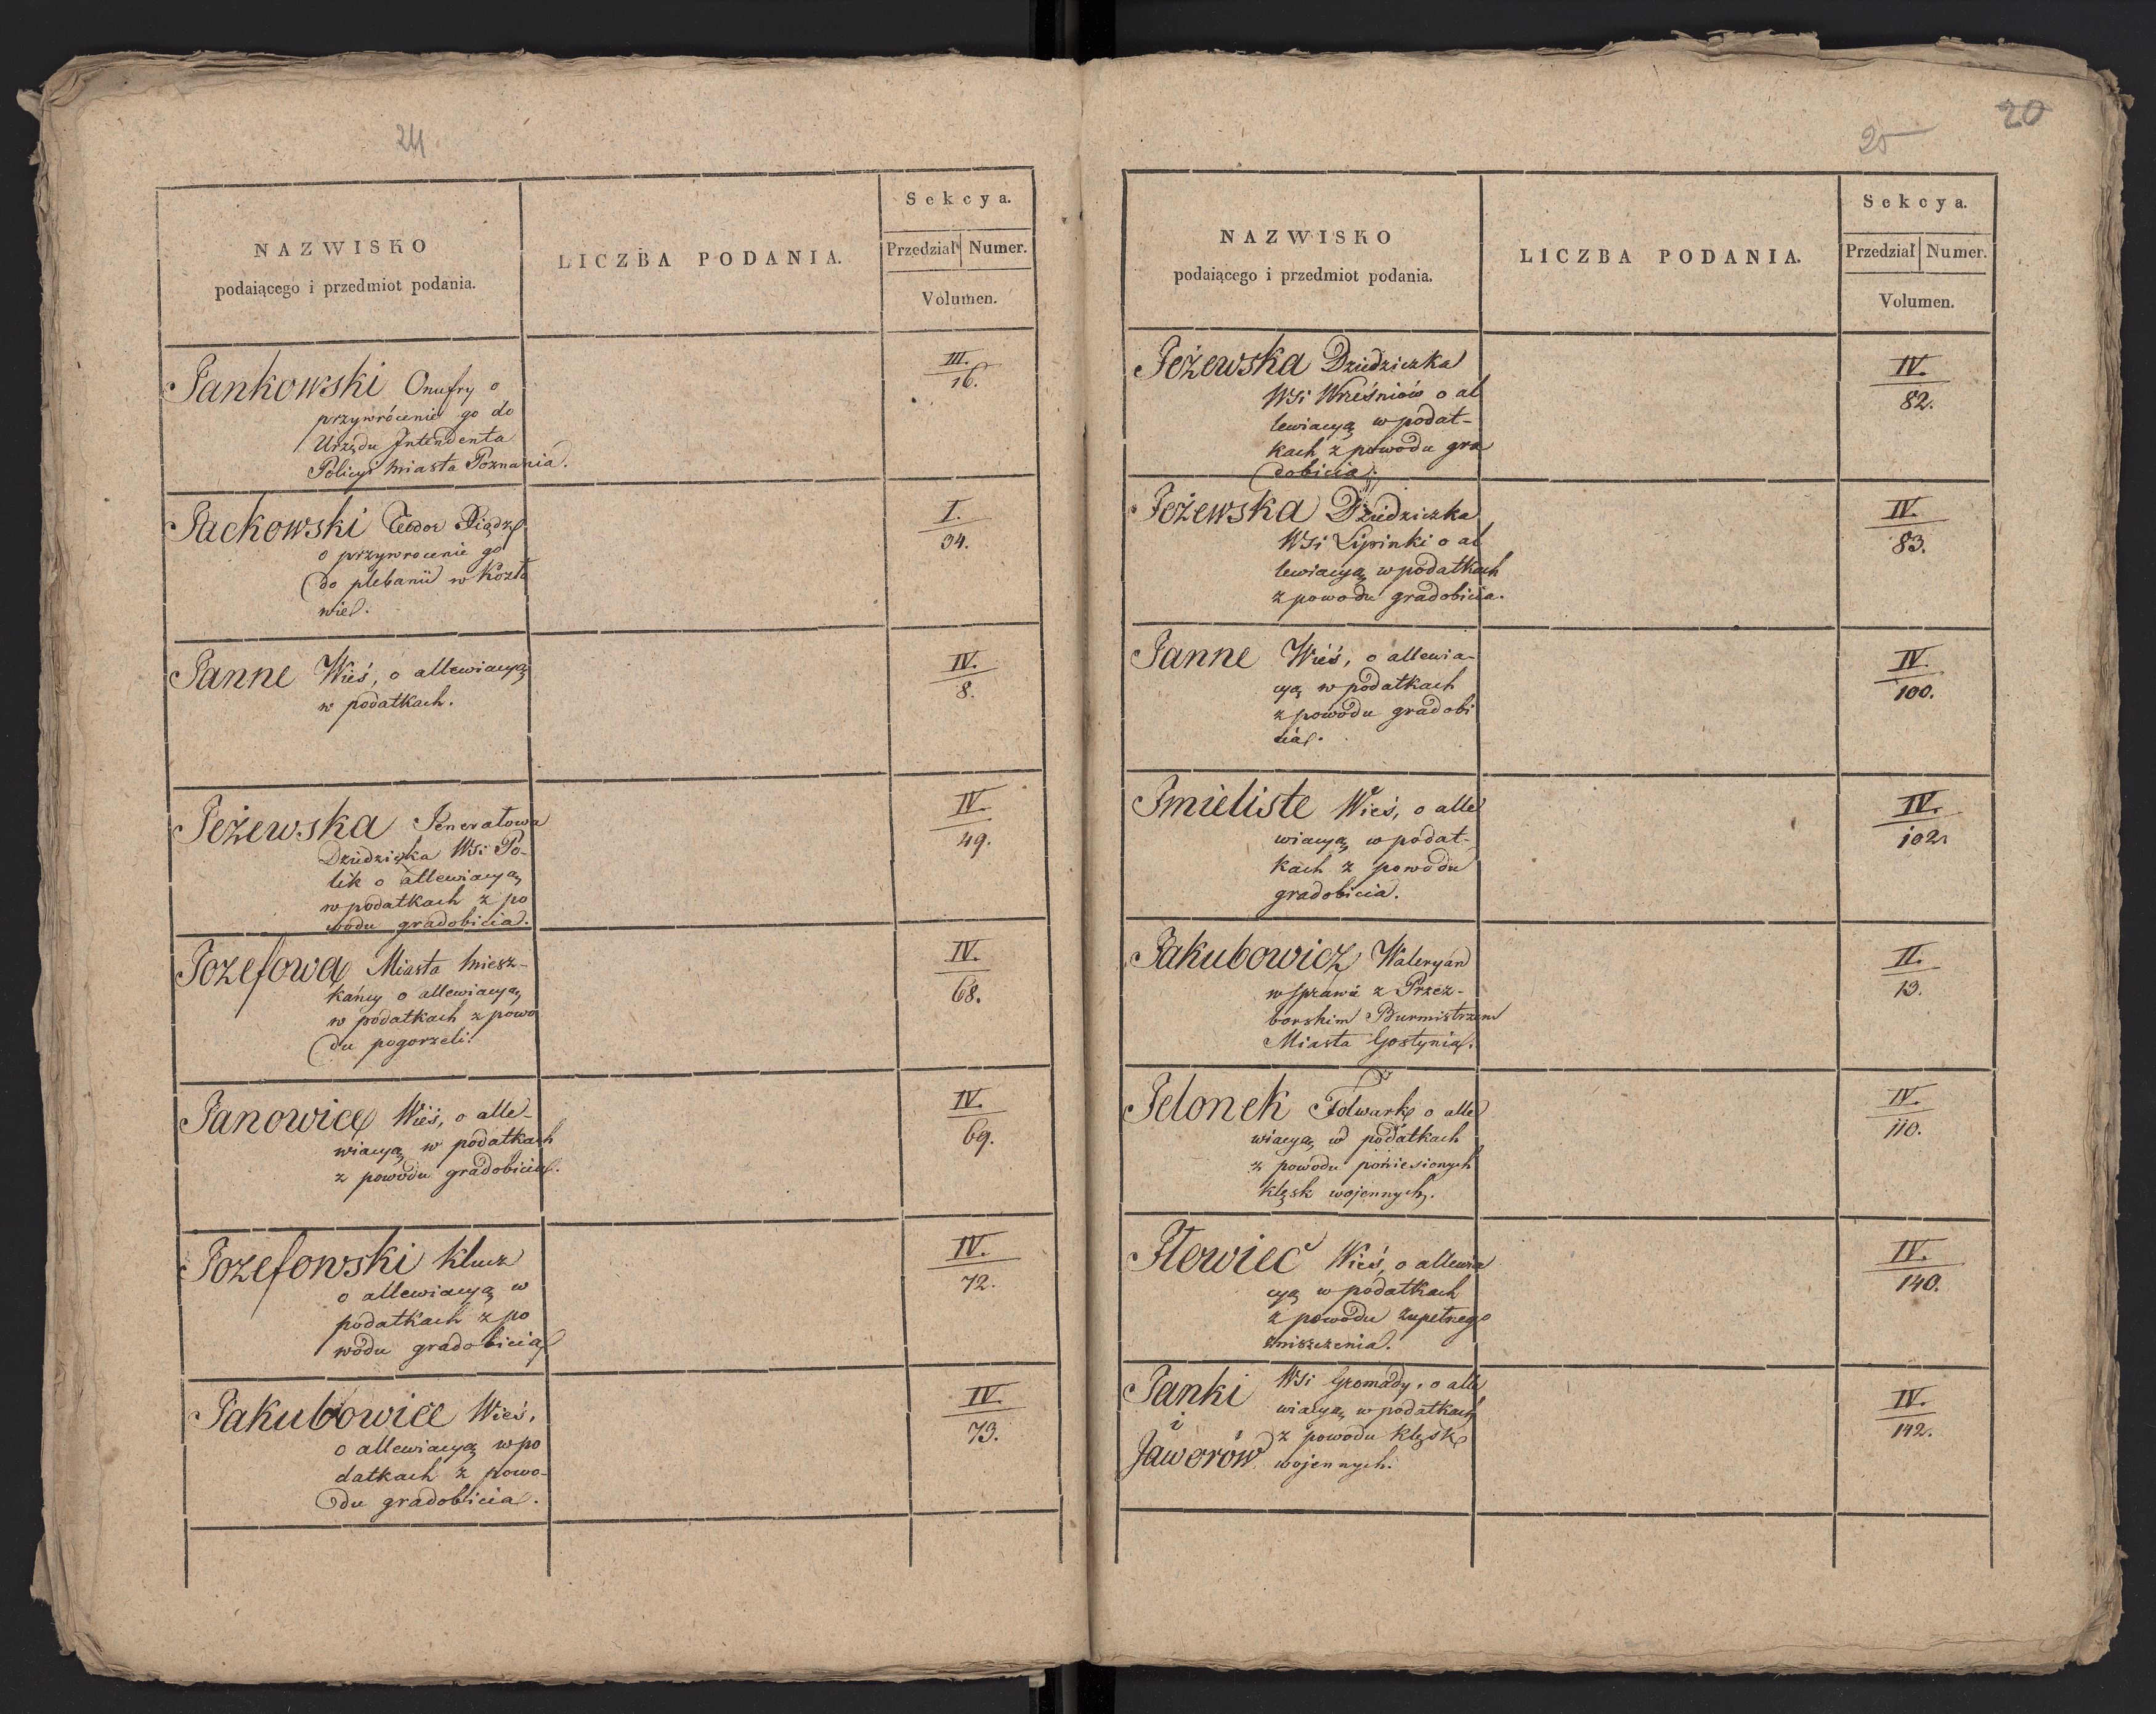 24
NAZWISKO
podaiącego i przedmiot podania.
LICZBA PODANIA.
Sekcya.
Przedział Numer.
Volumen.
Jankowski Onufry o
przywrócenie go do
Urzędu Intendenta
Policyi Miasta Poznania.
III.
16.
Jackowski Teodor Xiądz
o przywrocenie go
do plebanii w Kozła
wie.
I.
34.
Janne Wieś, o allewiacyą
w podatkach.
IV.
8.
Jeżewska Jenerałowa
Dziedziczka Wsi Po-
lik o allewiacyą
w podatkach z po
wodu gradobicia.
IV.
49.
Jozefowa Miasta Miesz-
kańcy o allewiacyą
w podatkach z powo
du pogorzeli.
IV.
68.
Janowice Wieś, o alle-
wiacyą w podatkach
z powodu gradobicia.
IV.
69.
Jozefowski Klucz
o allewiacyą w
podatkach z po
wodu gradobicia
IV.
72.
Jakubowice Wieś,
o allewiacyą w po
datkach z powo-
du gradobicia.
IV.
73.
20
25
NAZWISKO
podaiącego i przedmiot podania.
LICZBA PODANIA.
Sekcya.
Przedział Numer.
Volumen.
Jeżewska Dziedziczka
Wsi Wrześniów o al
lewiacyą w podat-
kach z powodu gra
dobicia.
IV.
82.
Jeżewska Dziedziczka
Wsi Lipinki o al
lewiacyą w podatkach
z powodu gradobicia.
IV.
83.
Janne Wieś, o allewia-
cyą w podatkach
z powodu gradobi
cia.
IV.
100.
Jmieliste Wieś, o alle
wiacyą w podat-
kach z powodu
gradobicia.
IV.
102.
Jakubowicz Waleryan
w sprawie z Przez-
borskim Burmistrzem
Miasta Gostynia.
II.
13.
Jelonek Folwark o alle
wiacyą w podatkach
z powodu poniesionych
klęsk wojennych.
IV.
110.
Jłowiec Wieś, o allewia
cyą w podatkach
z powodu zupełnego
zniszczenia.
IV.
140.
Janki Wsi Gromady, o alle
i wiacyą w podatkach
z powodu klęsk
Jaworów wojennych.
IV.
142.